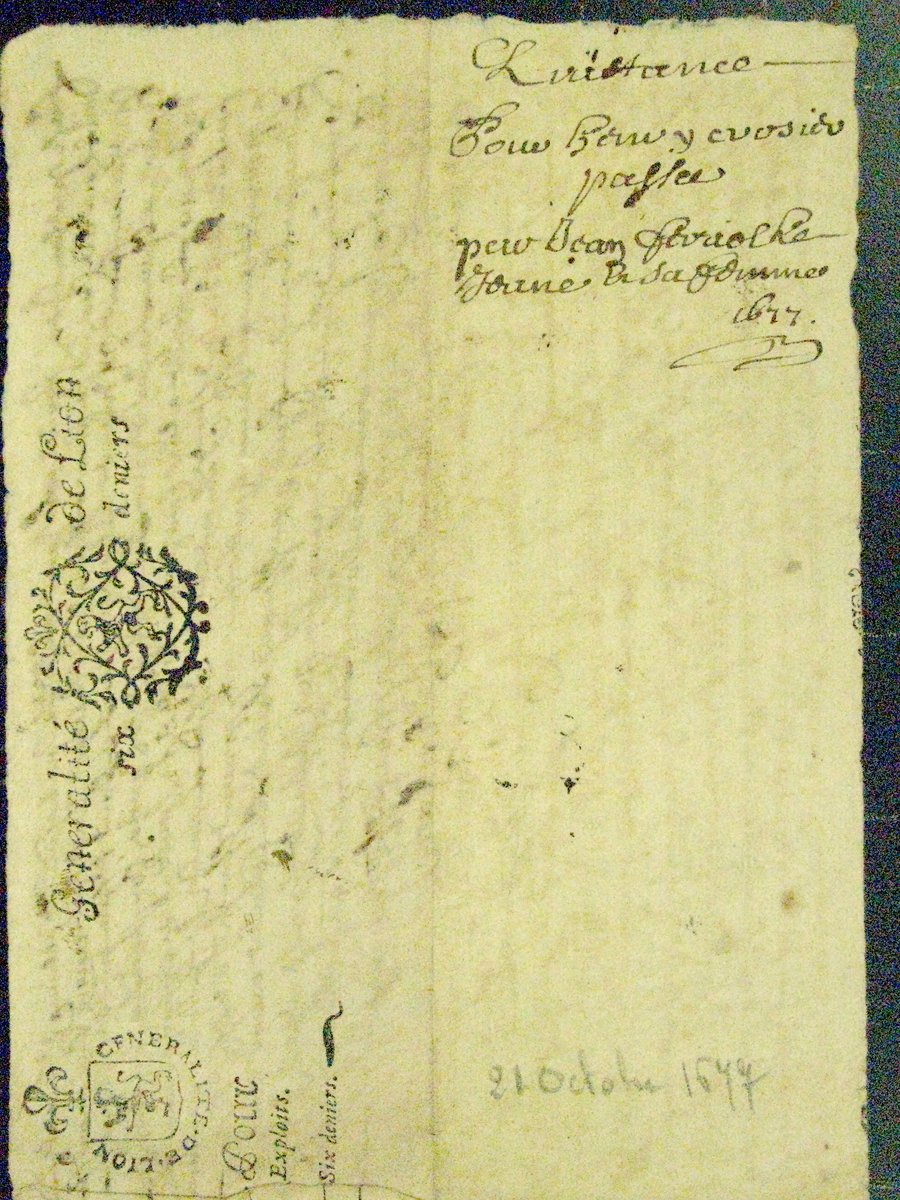 Quittance
Pour henry crosier
passee
par Jean ferriol le
Jeune & sa femme
1677.
Generalité de Lion
six deniers
GENERALITE·DE·LION
Pour
Exploits.
Six deniers.
21 Octobre 1677